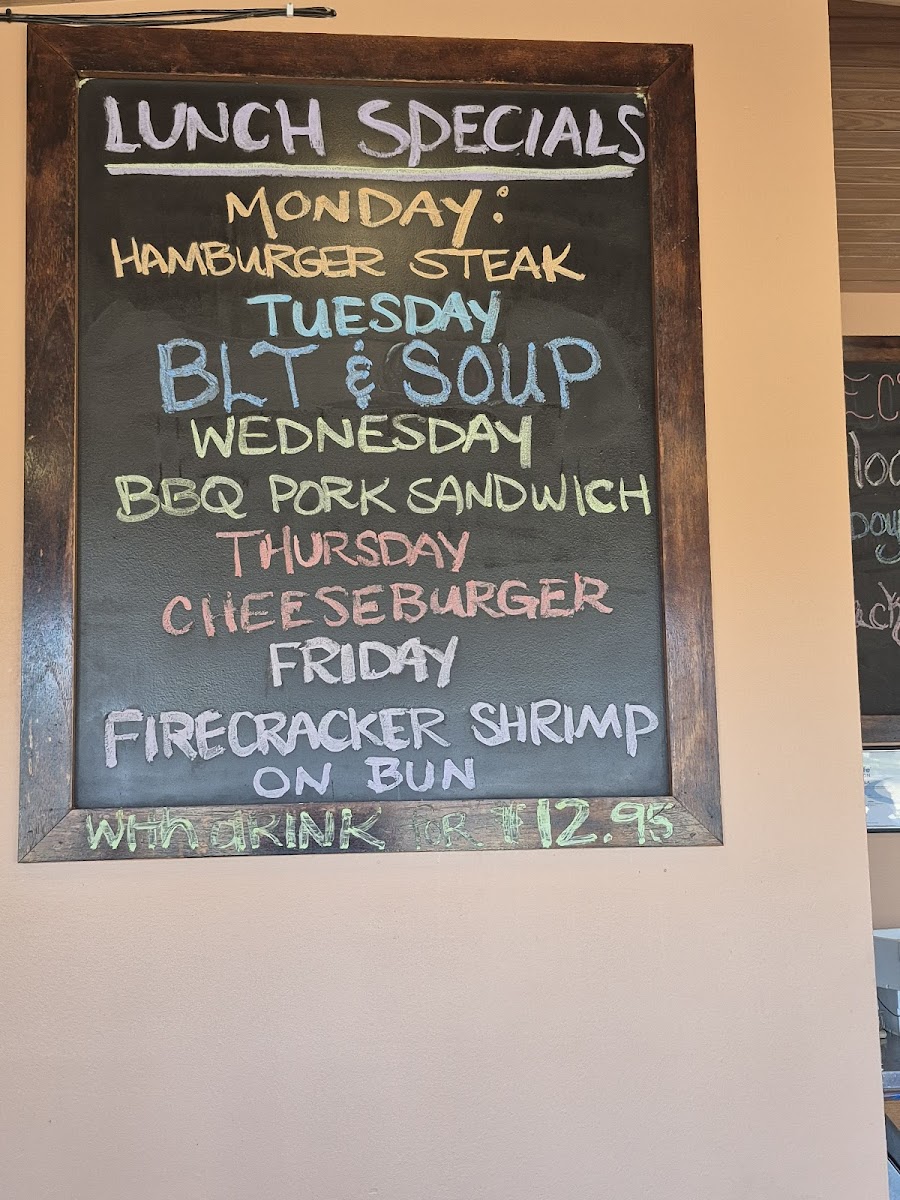 LUNCH SPECIALS
MONDAY:
HAMBURGER STEAK
TUESDAY
BLT & SOUP
WEDNESDAY
BBQ PORK SANDWICH
THURSDAY
CHEESEBURGER
FRIDAY
FIRECRACKER SHRIMP
ON BUN
WITH dRINK FOR $12.95